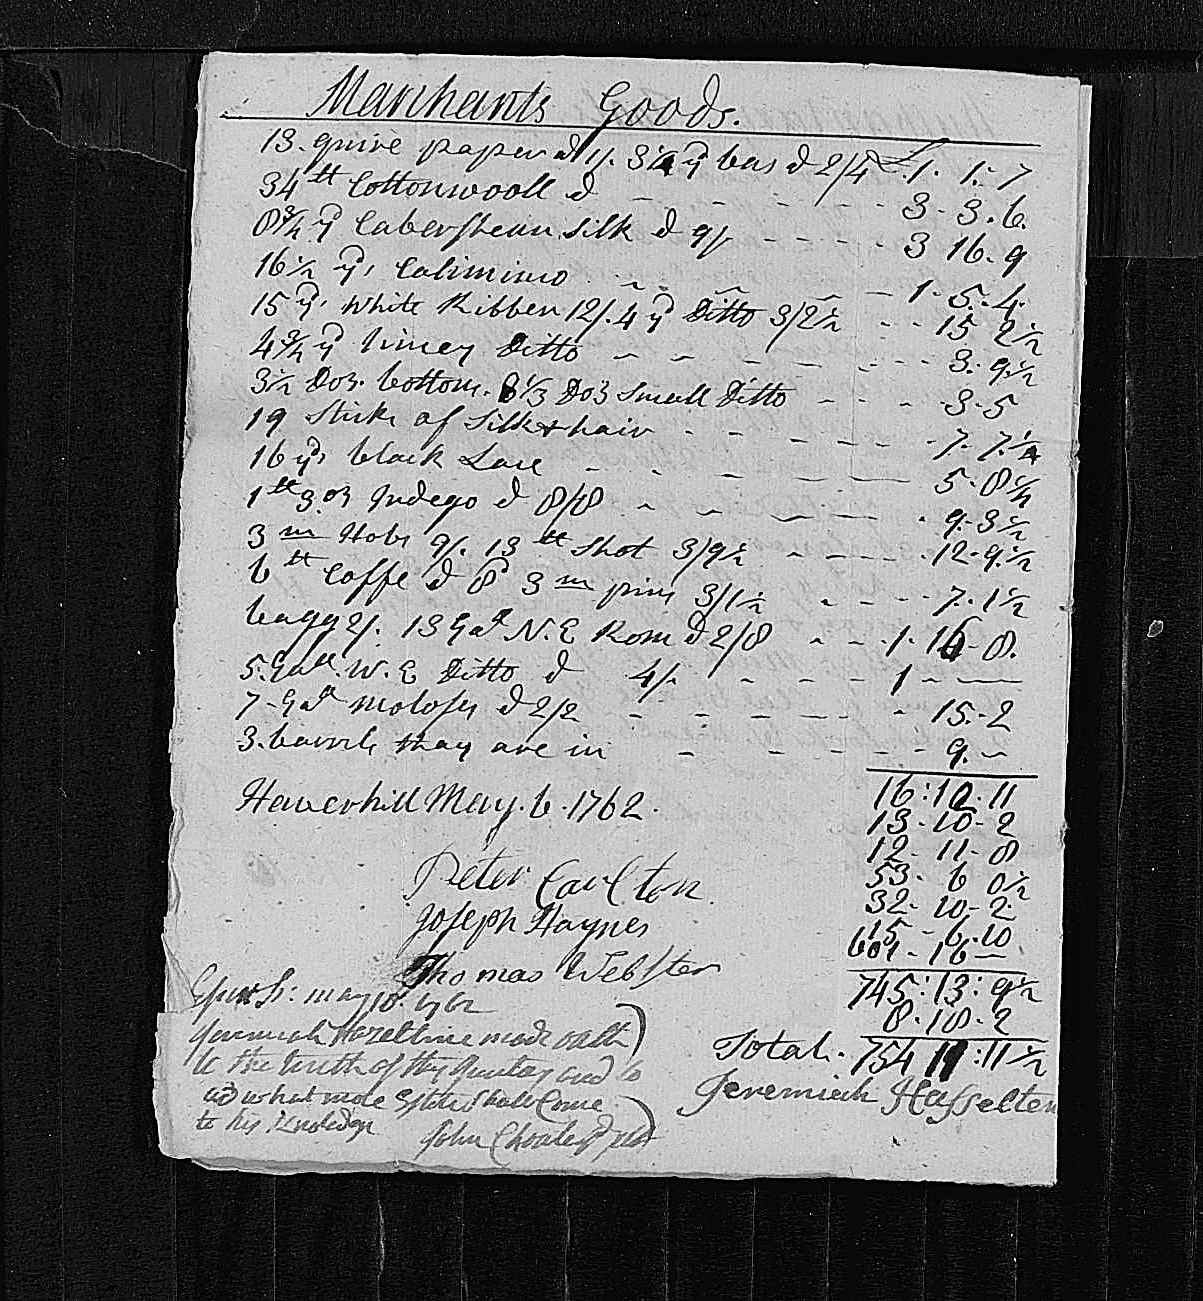 Marchants Goods.
13. quire paper @ 1/. 3 1/4 yd bas @ 2/4 £.1. 1.-7
34 tt Cottonwooll @ - - - - - - 3 - 3. 6.
8 3/4 yd silk @ 9/ - - - - 3 16. 9
16 1/2 yds Caliminco - - - - 1. 5. 4.
15 yds white Ribben 12/. 4 yd Ditto 3/2 1/2 - - 15 2 1/2
4 3/4 yd Ditto - - - - - - 3. 9. 1/2
3 1/2 Doz. bottom. 8 1/3 Doz small Ditto - - - - 3. 5
19 Sticks of Silk & hair - - - - - - 7. 7. 1/4
16 yds black Lace - - - - - 5. 8 1/2
1 tt 3 oz Indego @ 8/8 - - - - - 9. 3 1/2
3 m Hobs 9/. 13 tt Shot 3/9 1/2 - - - - 12. 9. 1/2
6 tt Coffe @ 8d 3 m pins 3/1 1/2 - - - - 7. 1 1/2
bagg 2/. 13 Gall N. E Rom @ 2/8 - - 1. 16. 8.
5. Gall. W. E Ditto @ 4/. - - - - 1 - —
7 - Gall moloses @ 2/2 - - - - - - 15. - 2
3. barrils thay are in - - - - - - 9. -
Haverhill May. 6. 1762.
16 : 12 : 11
13 - 10 - 2
12 - 11 - 8
53 - 6 0 1/2
32 - 10 - 2
15 - 6. 10
601 - 16 —
745 : 13 : 9 1/2
8 - 18 - 2
Peter Carlton
Joseph Haynes
Thomas Webster
Total. 754 11 : 11 1/2
Jeremiah Hasselten
may 10 1762
Jeremiah Hazeltine made oath
to the truth of this and so
what more Estate shall Come
to his knoledge
John Choate